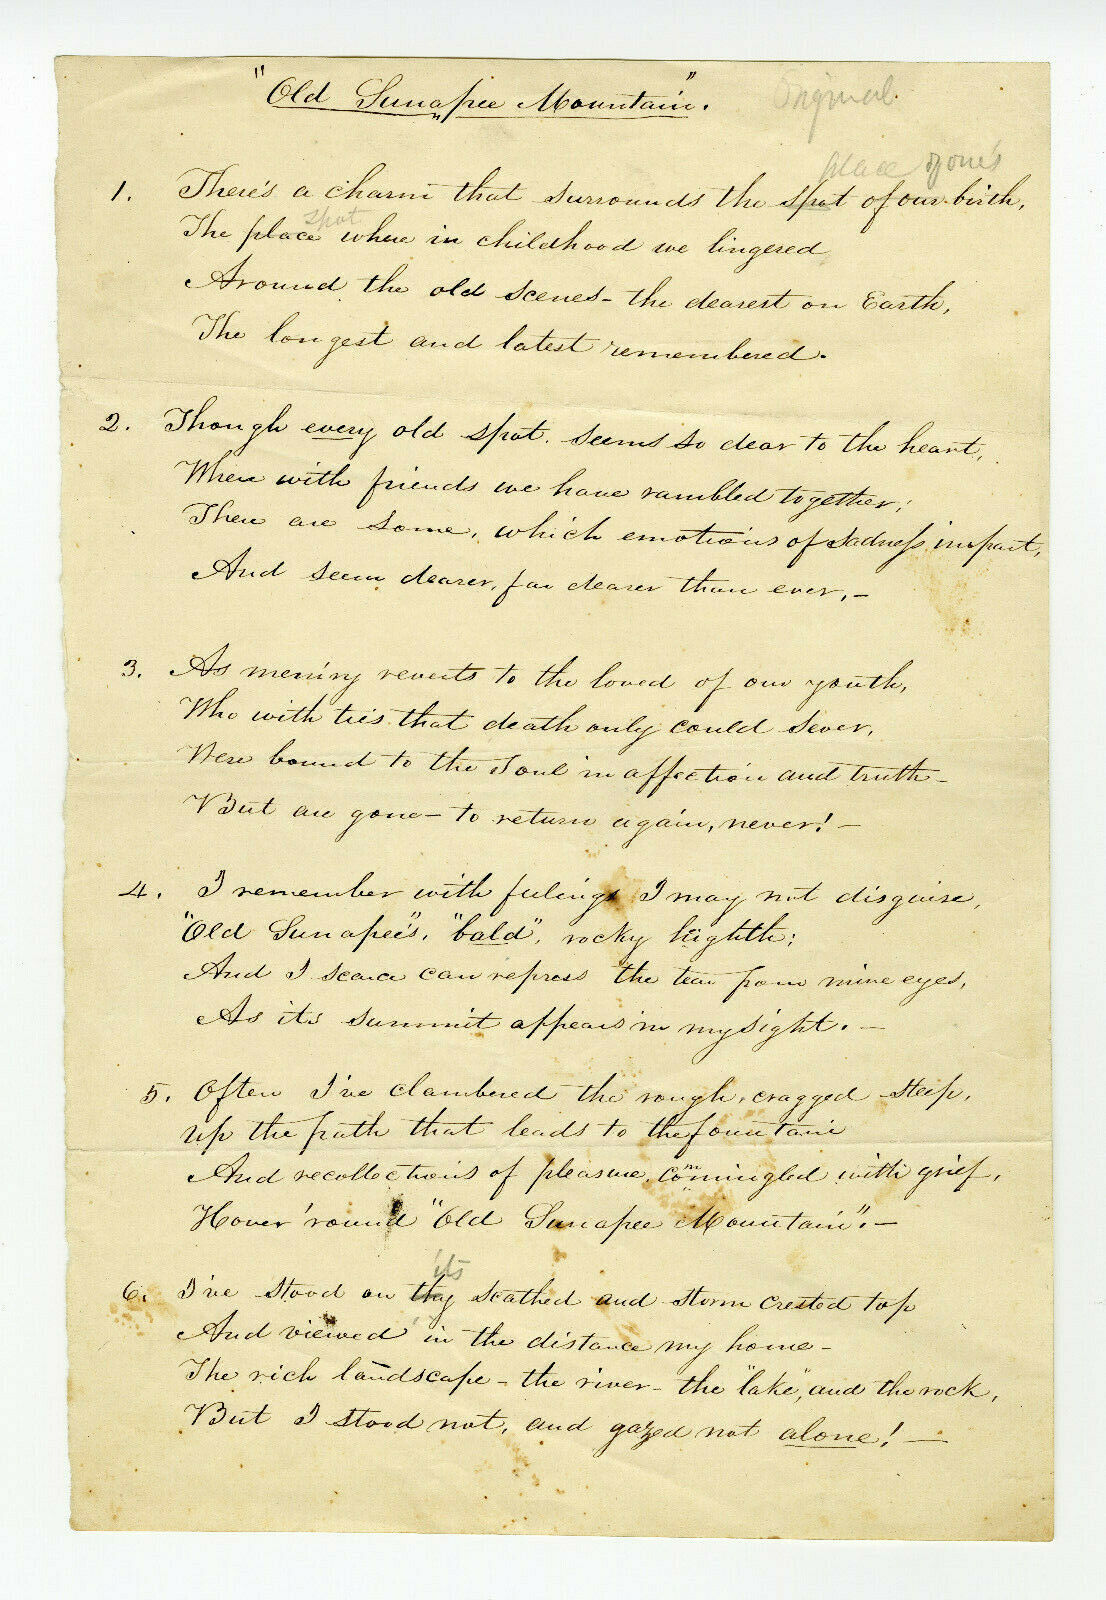 "Old Sunapee Mountain".
Original.
place of one's
1. There's a charm that surrounds the spot of our birth,
spot
The place where in childhood we lingered
Around the old scenes - the dearest on Earth,
The longest and latest remembered.
2. Though every old spot seems so dear to the heart,
Where with friends we have rambled together;
There are some, which emotions of sadness impart,
And seem dearer, far dearer than ever, -
3. As mem'ry reverts to the loved of our youth,
Who with ties that death only could sever,
Were bound to the soul in affection and truth -
But are gone - to return again, never! -
4. I remember with feelings I may not disguise,
"Old Sunapee's", "bald", rocky highth;
And I scarce can repress the tear from mine eyes,
As its summit appears in my sight. -
5. Often I've clambered the rough, cragged steep,
Up the path that leads to the fountain
And recollections of pleasure, commingled with grief,
Hover 'round "Old Sunapee Mountain". -
its
6. I've stood on thy scathed and storm crested top
And viewed in the distance my home -
The rich landscape - the river - the "lake", and the rock,
But I stood not, and gazed not alone! -